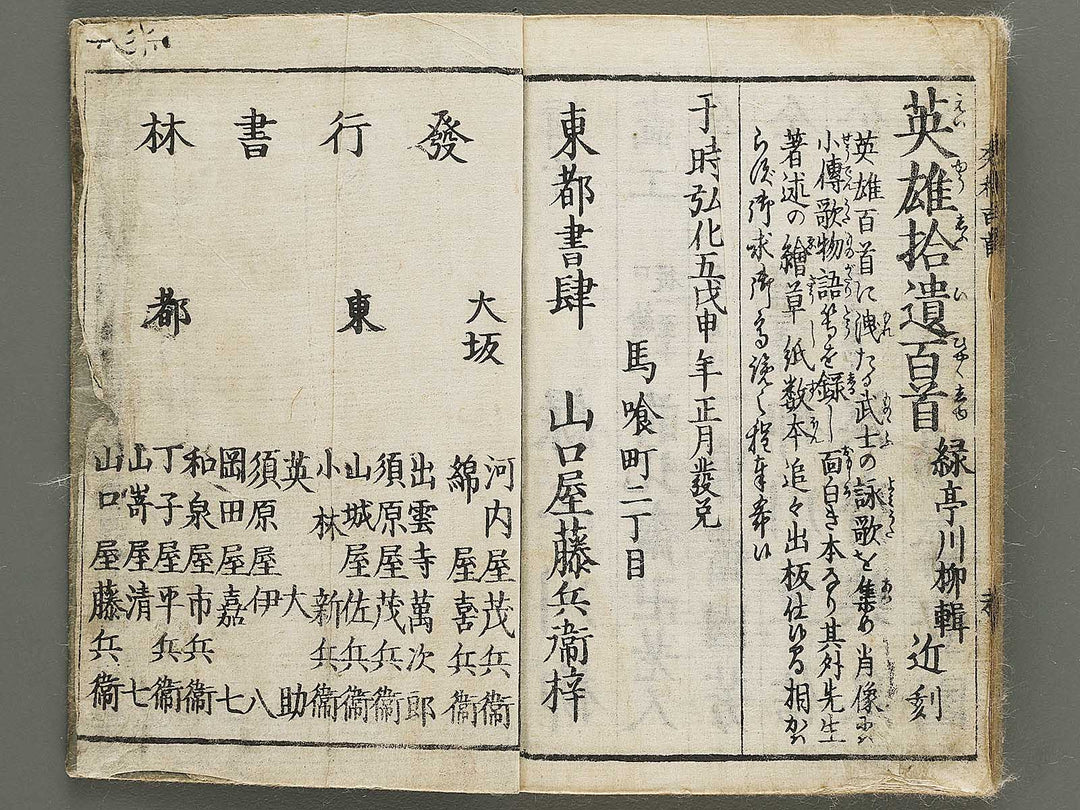 英雄拾遺百首
緑亭川柳輯
近刻
英雄百首に洩たる武士の詠歌を集め肖像并ニ
小傳歌物語等を録し面白き本なり其外先生
著述の繪草紙数本追々出板仕候間相かはらず御求御高覧之程奉希候
于時弘化五戊申年正月發兌
馬喰町二丁目
東都書肆 山口屋藤兵衞梓
發行書林
大坂
河内屋茂兵衞
綿屋喜兵衞
東都
出雲寺萬次郎
須原屋茂兵衞
山城屋佐兵衞
小林新兵衞
英大助
須原屋伊八
岡田屋嘉七
和泉屋市兵衞
丁子屋平兵衞
山嵜屋清七
山口屋藤兵衞